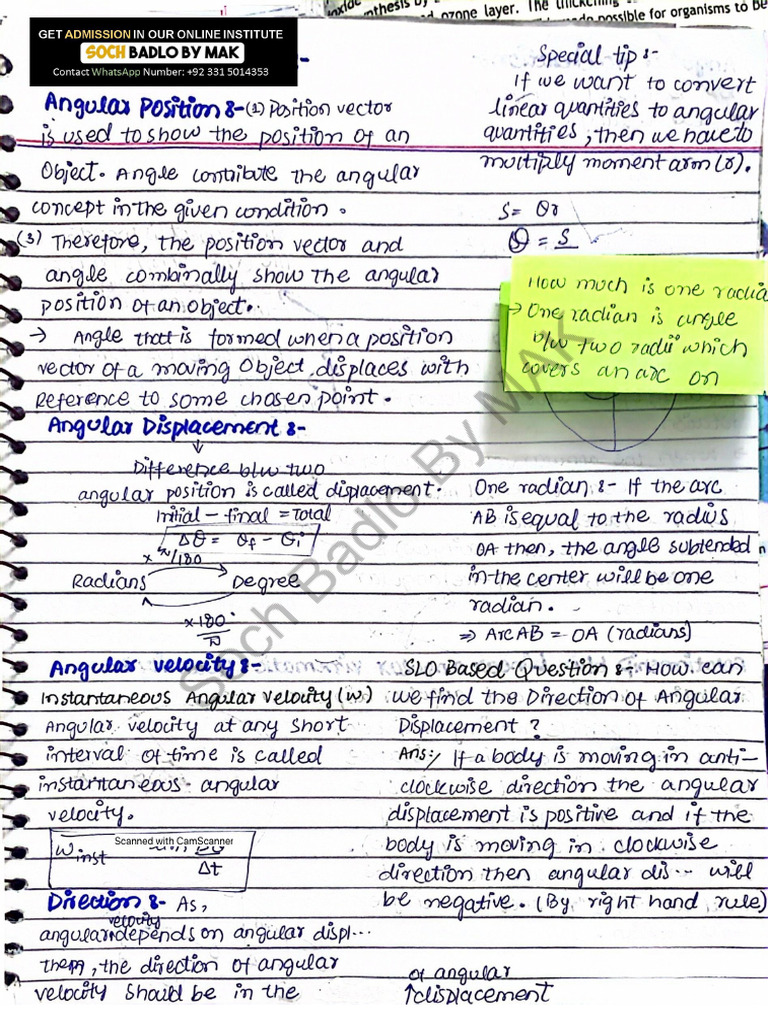 nthesis by
ozone layer. The thickening
possible for organisms to be
GET ADMISSION IN OUR ONLINE INSTITUTE
SOCH BADLO BY MAK
Contact WhatsApp Number: +92 331 5014353
Angular Position :- (1) Position vector
is used to show the position of an
Object. Angle contribute the angular
concept in the given condition.
(3) Therefore, the position vector and
angle combinally show the angular
position of an object.
→ Angle that is formed when a position
vector of a moving Object, displaces with
Reference to some chosen point.
Angular Displacement :-
↓
Difference b/w two
angular position is called displacement.
Initial - final = Total
Δθ = θf - θi
× π/180
Radians Degree
×180°
π
Angular velocity :-
Instantaneous Angular velocity (w)
Angular velocity at any short
interval of time is called
instantaneous angular
velocity.
Winst
Scanned with CamScanner
Δt
Direction :- As,
velocity
angular depends on angular displ...
them, the direction of angular
velocity should be in the
Special tip :-
If we want to convert
linear quantities to angular
quantities, then we have to
multiply moment arm (r).
S = θr
θ = S
How much is one radia
→ One radian is angle
b/w two radii which
covers an arc on
One radian :- If the arc
AB is equal to the radius
OA then, the angle subtended
in the center will be one
radian.
⇒ Arc AB = OA (radians)
SLO Based Question :- How can
we find the Direction of Angular
Displacement ?
Ans:/ If a body is moving in anti-
clockwise direction the angular
displacement is positive and if the
body is moving in clockwise
direction then angular dis... will
be negative. (By right hand rule)
of angular
↑displacement
Soch Badlo By MAK